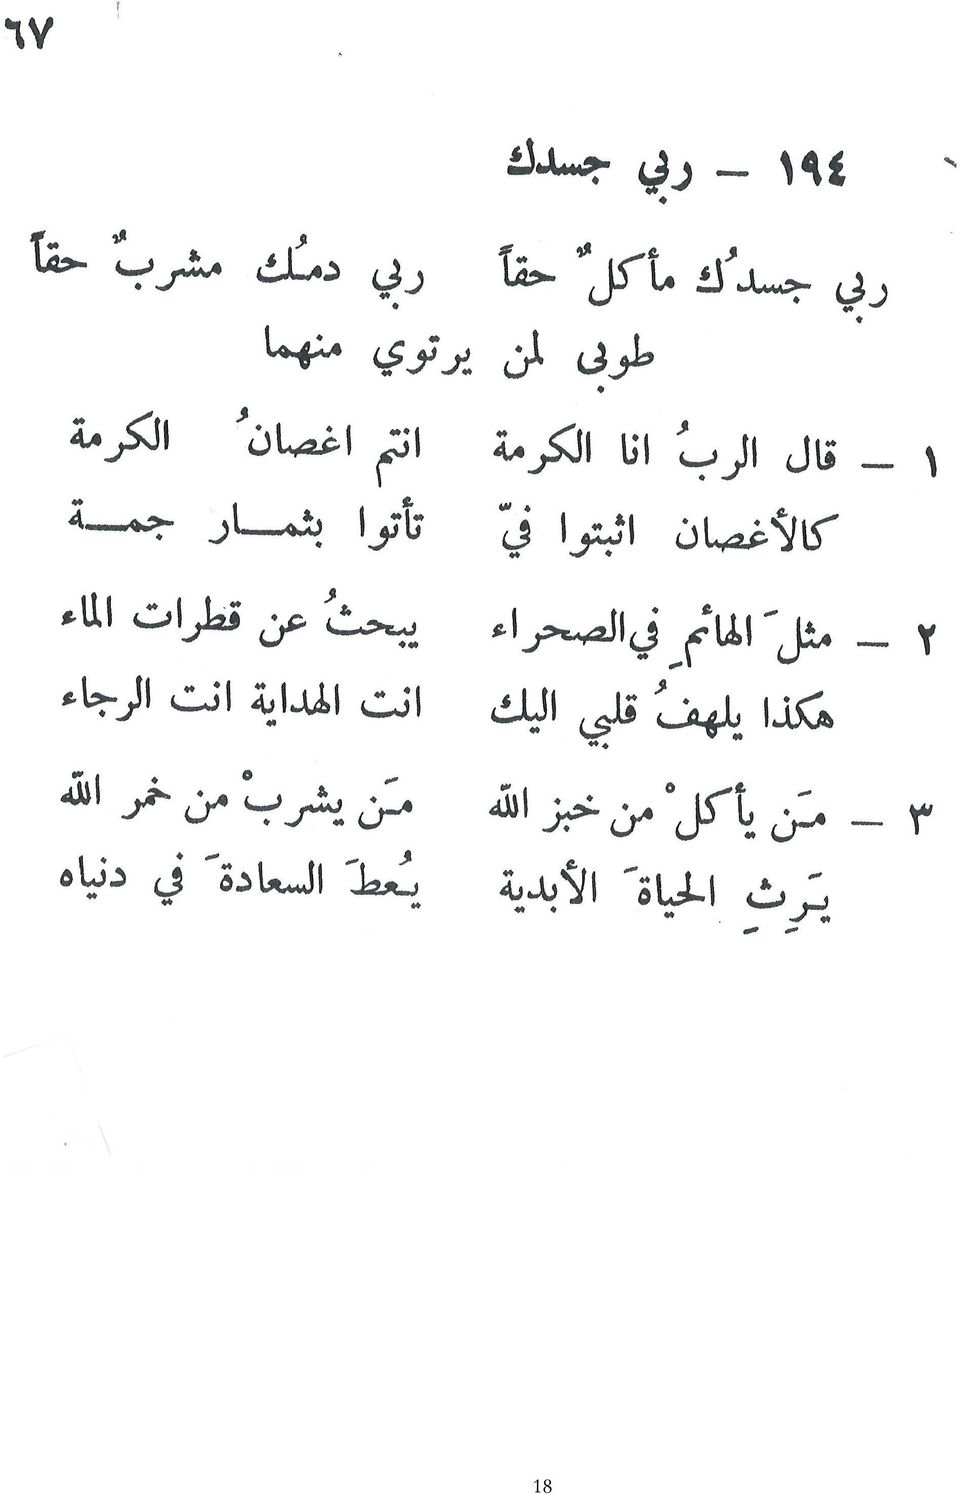 ٦٧
١٩٤ – ربي جسدك
ربي جسدُك مأكلٌ حقاً ربي دمُك مشربٌ حقاً
طوبى لمن يرتوي منهما
١ – قال الربُ انا الكرمة انتم اغصانُ الكرمة
كالأغصان اثبتوا فيّ تأتوا بثمـــار جمـــة
٢ – مثلَ الهائمِ في الصحراء يبحثُ عن قطرات الماء
هكذا يلهفُ قلبي اليك انت الهداية انت الرجاء
٣ – مَن يأكلْ من خبز الله مَن يشربْ من خمر الله
يَرِثِ الحياةَ الأبدية يُعطَ السعادةَ في دنياه
18